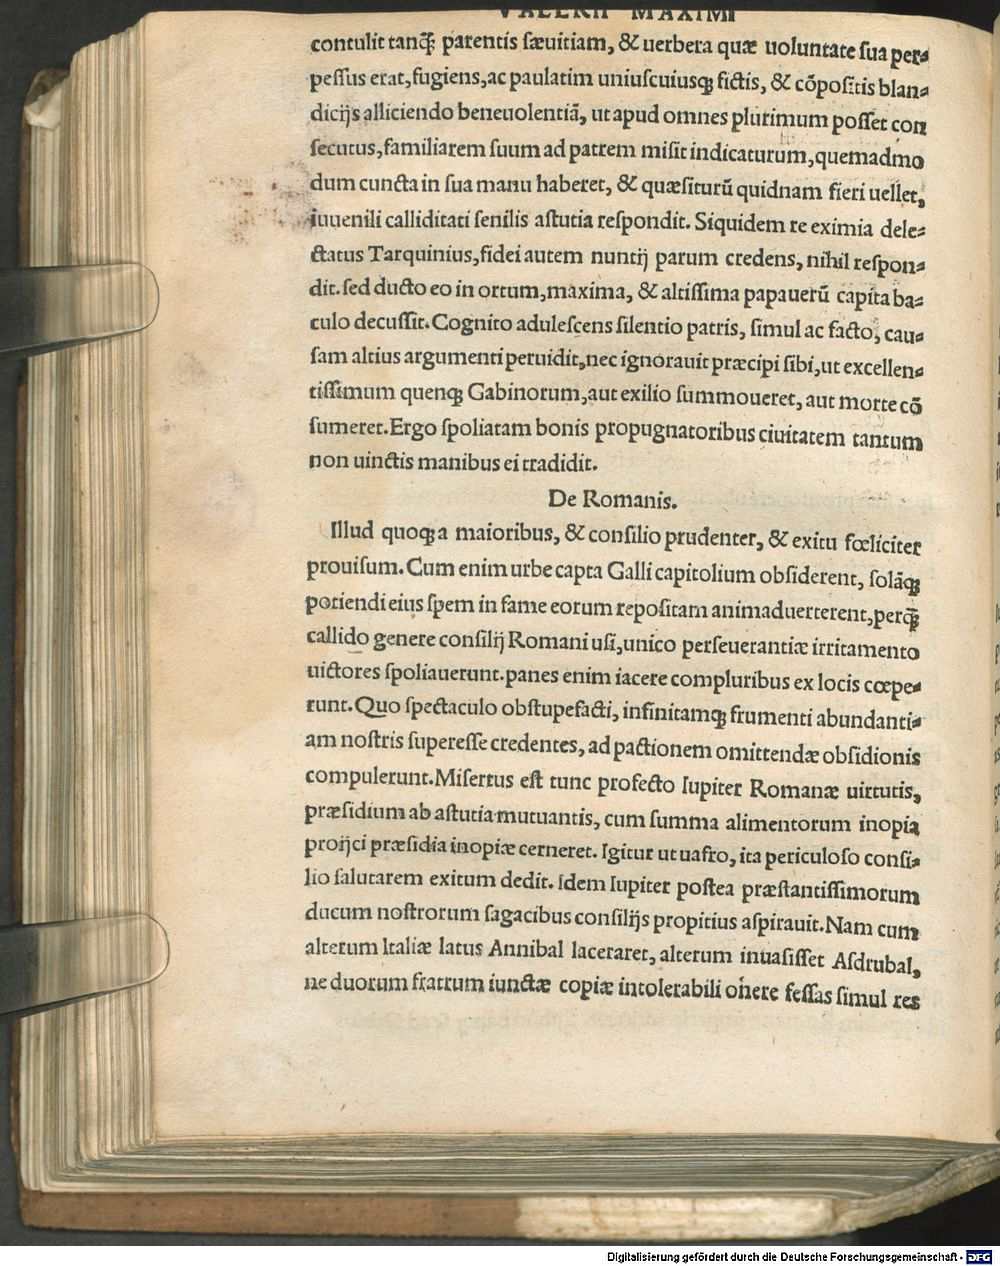 VALERII MAXIMI
contulit tanq̃ parentis sæuitiam, & uerbera quæ uoluntate sua per⸗
pessus erat, fugiens, ac paulatim uniuscuiusq; fictis, & cõpositis blan⸗
dicijs alliciendo beneuolentiã, ut apud omnes plurimum posset con
secutus, familiarem suum ad patrem misit indicaturum, quemadmo
dum cuncta in sua manu haberet, & quæsiturũ quidnam fieri uellet,
iuuenili calliditati senilis astutia respondit. Siquidem re eximia dele⸗
ctatus Tarquinius, fidei autem nuntij parum credens, nihil respon⸗
dit. sed ducto eo in ortum, maxima, & altissima papauerũ capita ba⸗
culo decussit. Cognito adulescens silentio patris, simul ac facto, cau⸗
sam altius argumenti peruidit, nec ignorauit præcipi sibi, ut excellen⸗
tissimum quenq; Gabinorum, aut exilio summoueret, aut morte cõ
sumeret. Ergo spoliatam bonis propugnatoribus ciuitatem tantum
non uinctis manibus ei tradidit.
De Romanis.
Illud quoq; a maioribus, & consilio prudenter, & exitu fœliciter
prouisum. Cum enim urbe capta Galli capitolium obsiderent, solãq;
potiendi eius spem in fame eorum repositam animaduerterent, perq̃
callido genere consilij Romani usi, unico perseuerantiæ irritamento
uictores spoliauerunt. panes enim iacere compluribus ex locis cœpe⸗
runt. Quo spectaculo obstupefacti, infinitamq; frumenti abundanti⸗
am nostris superesse credentes, ad pactionem omittendæ obsidionis
compulerunt. Misertus est tunc profecto Iupiter Romanæ uirtutis,
præsidium ab astutia mutuantis, cum summa alimentorum inopia
proijci præsidia inopiæ cerneret. Igitur ut uafro, ita periculoso consi⸗
lio salutarem exitum dedit. Idem Iupiter postea præstantissimorum
ducum nostrorum sagacibus consilijs propitius aspirauit. Nam cum
alterum Italiæ latus Annibal laceraret, alterum inuasisset Asdrubal,
ne duorum fratrum iunctæ copiæ intolerabili onere fessas simul res
Digitalisierung gefördert durch die Deutsche Forschungsgemeinschaft - DFG